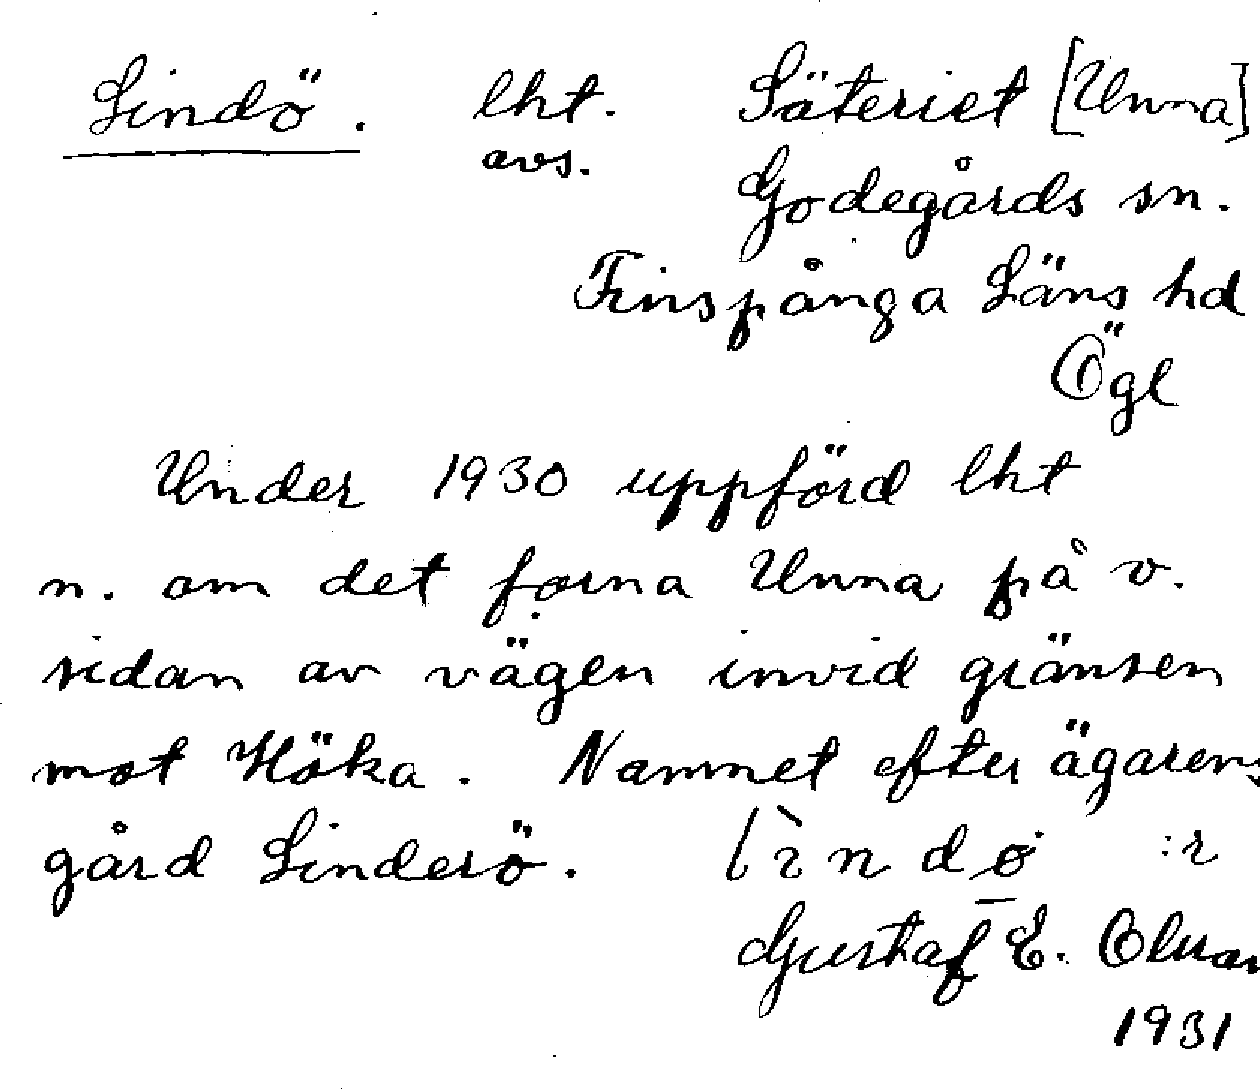 Lindö. lht. Säteriet [Unna]
avs. Godegårds sn.
Finspånga Läns hd
Ögl
Under 1930 uppförd lht
n. om det forna Unna på v.
sidan av vägen invid gränsen
mot Höka. Namnet efter ägarens
gård Linderö. :r
Gustaf E.
1931